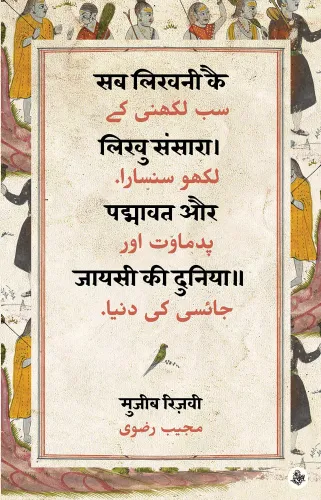 सब लिखनी कै
سب لکھنی کے
लिखु संसारा।
لکھو سنسارا.
पद्मावत और
پدماوَت اور
जायसी की दुनिया॥
جائسی کی دنیا.
मुजीब रिज़वी
مجیب رضوی